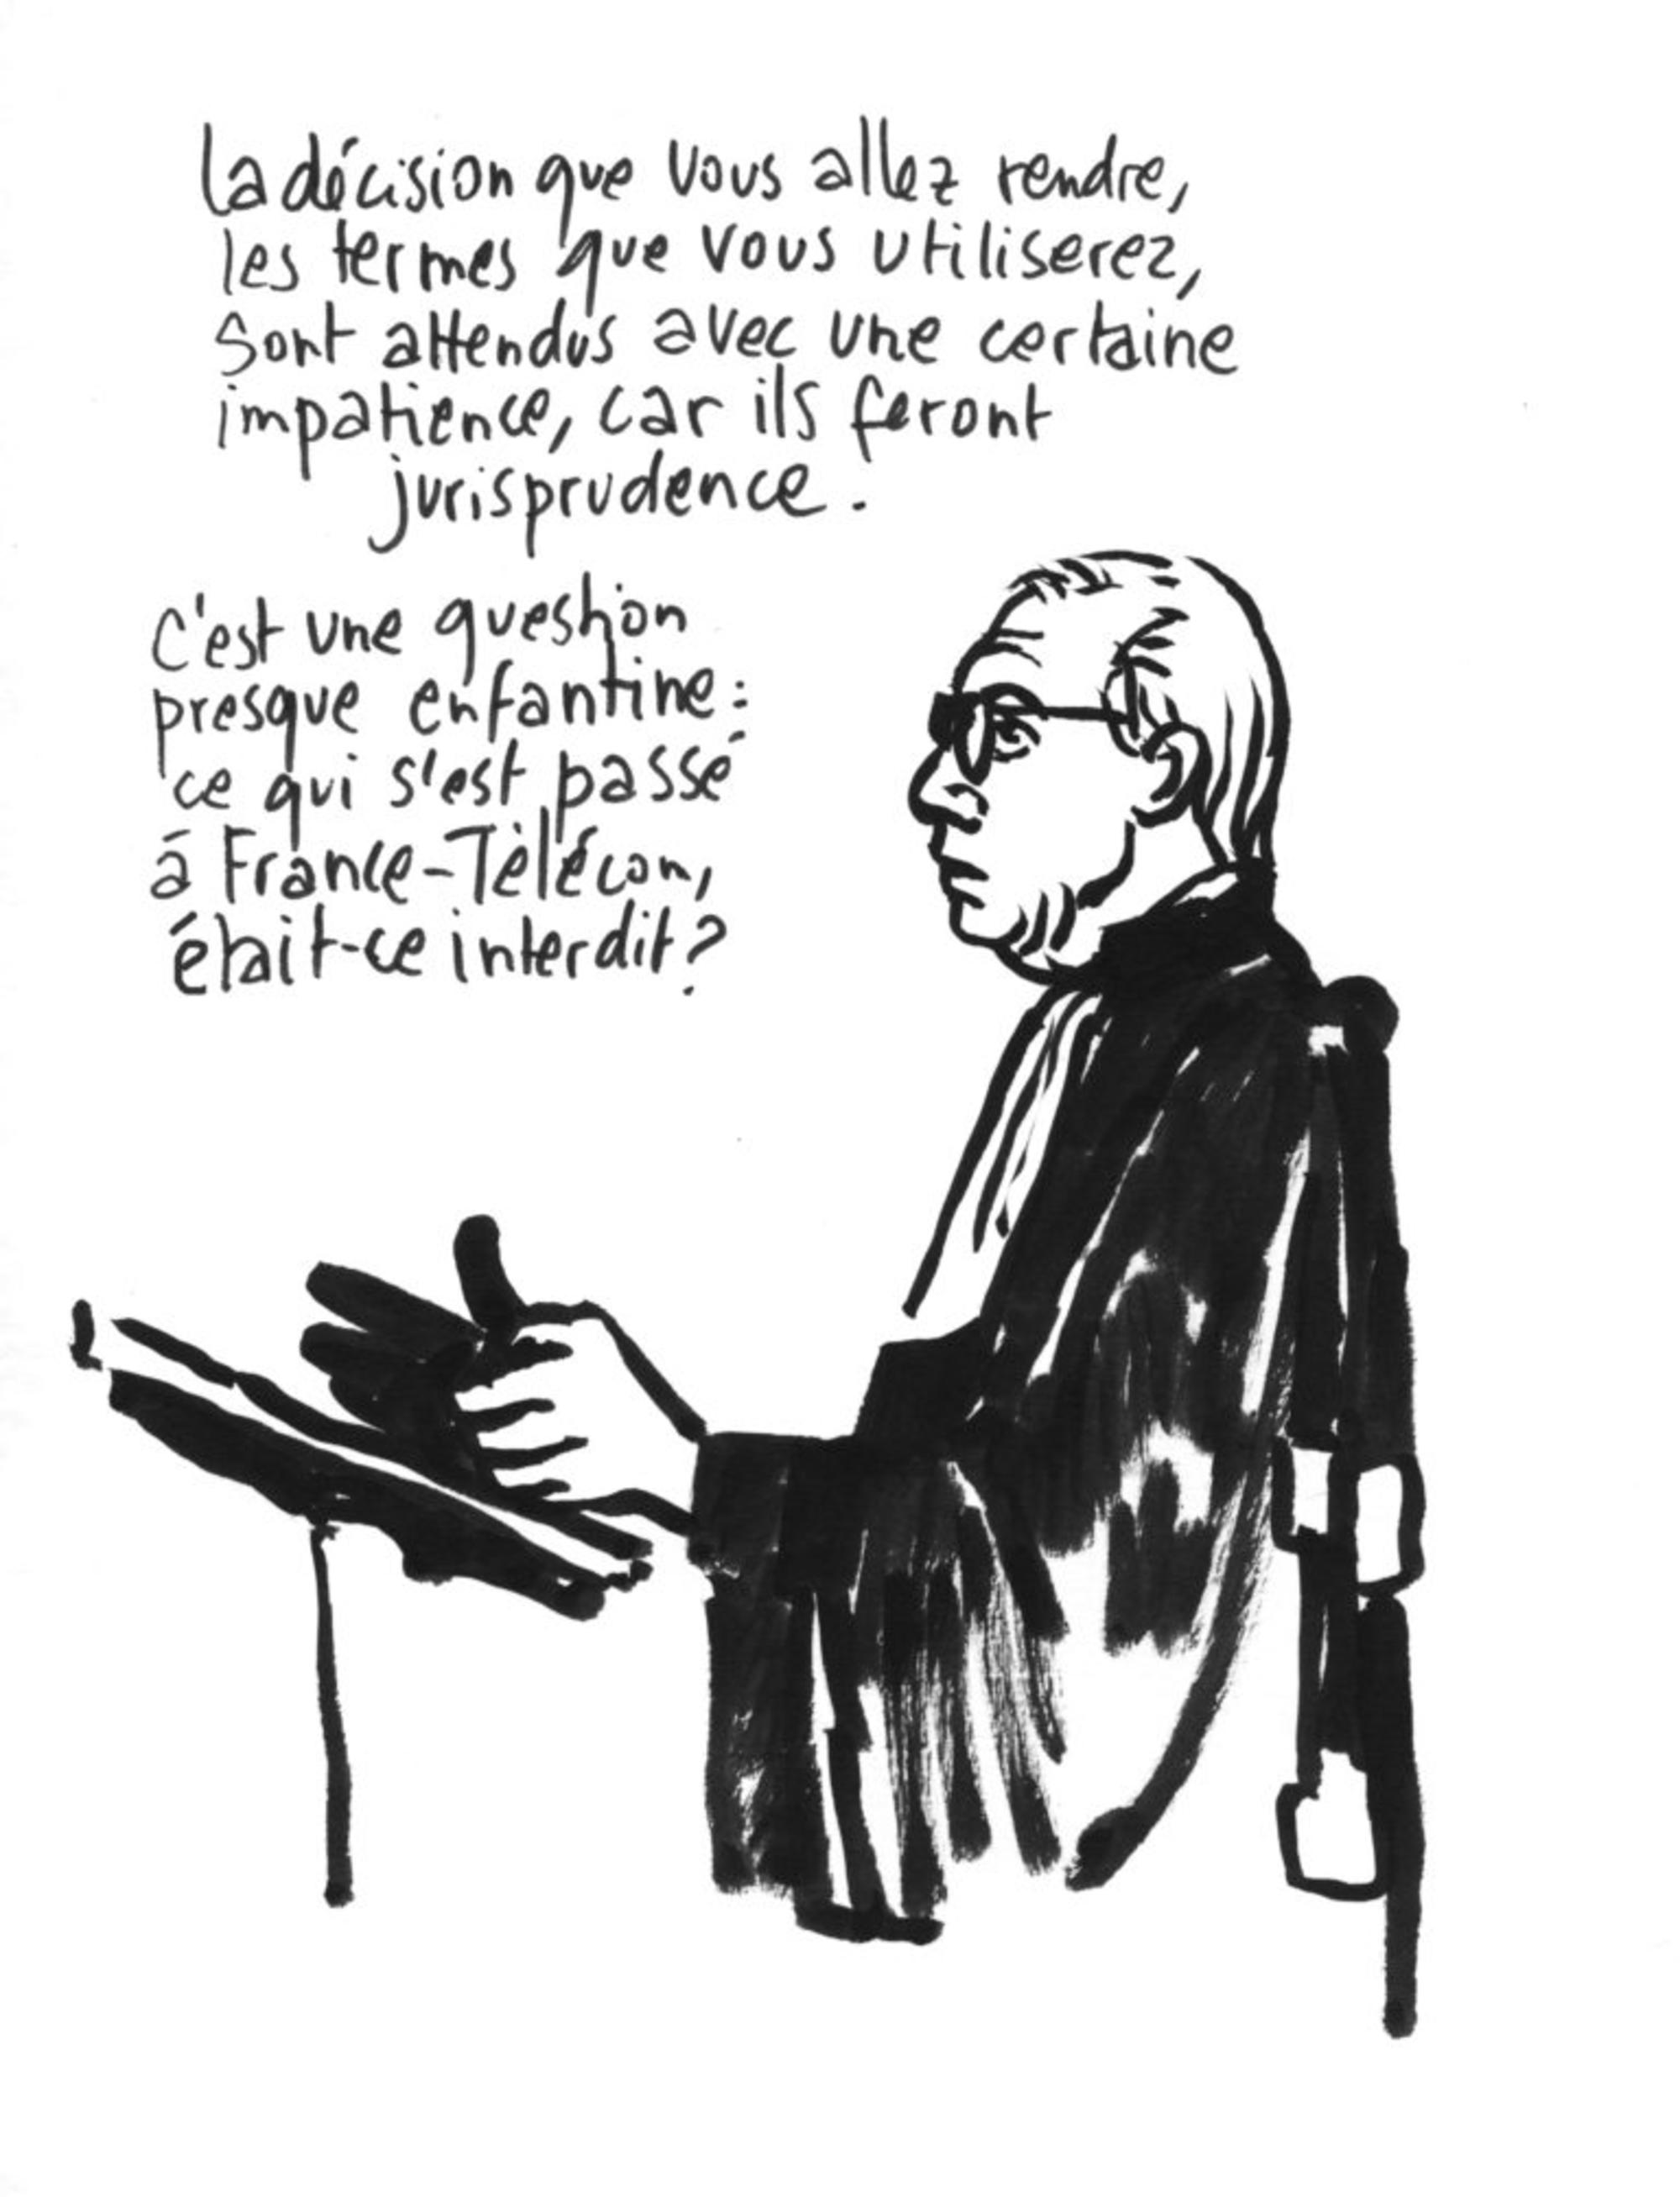 La décision que vous allez rendre,
les termes que vous utiliserez,
sont attendus avec une certaine
impatience, car ils feront
jurisprudence.
C'est une question
presque enfantine :
ce qui s'est passé
à France-Télécom,
était-ce interdit ?